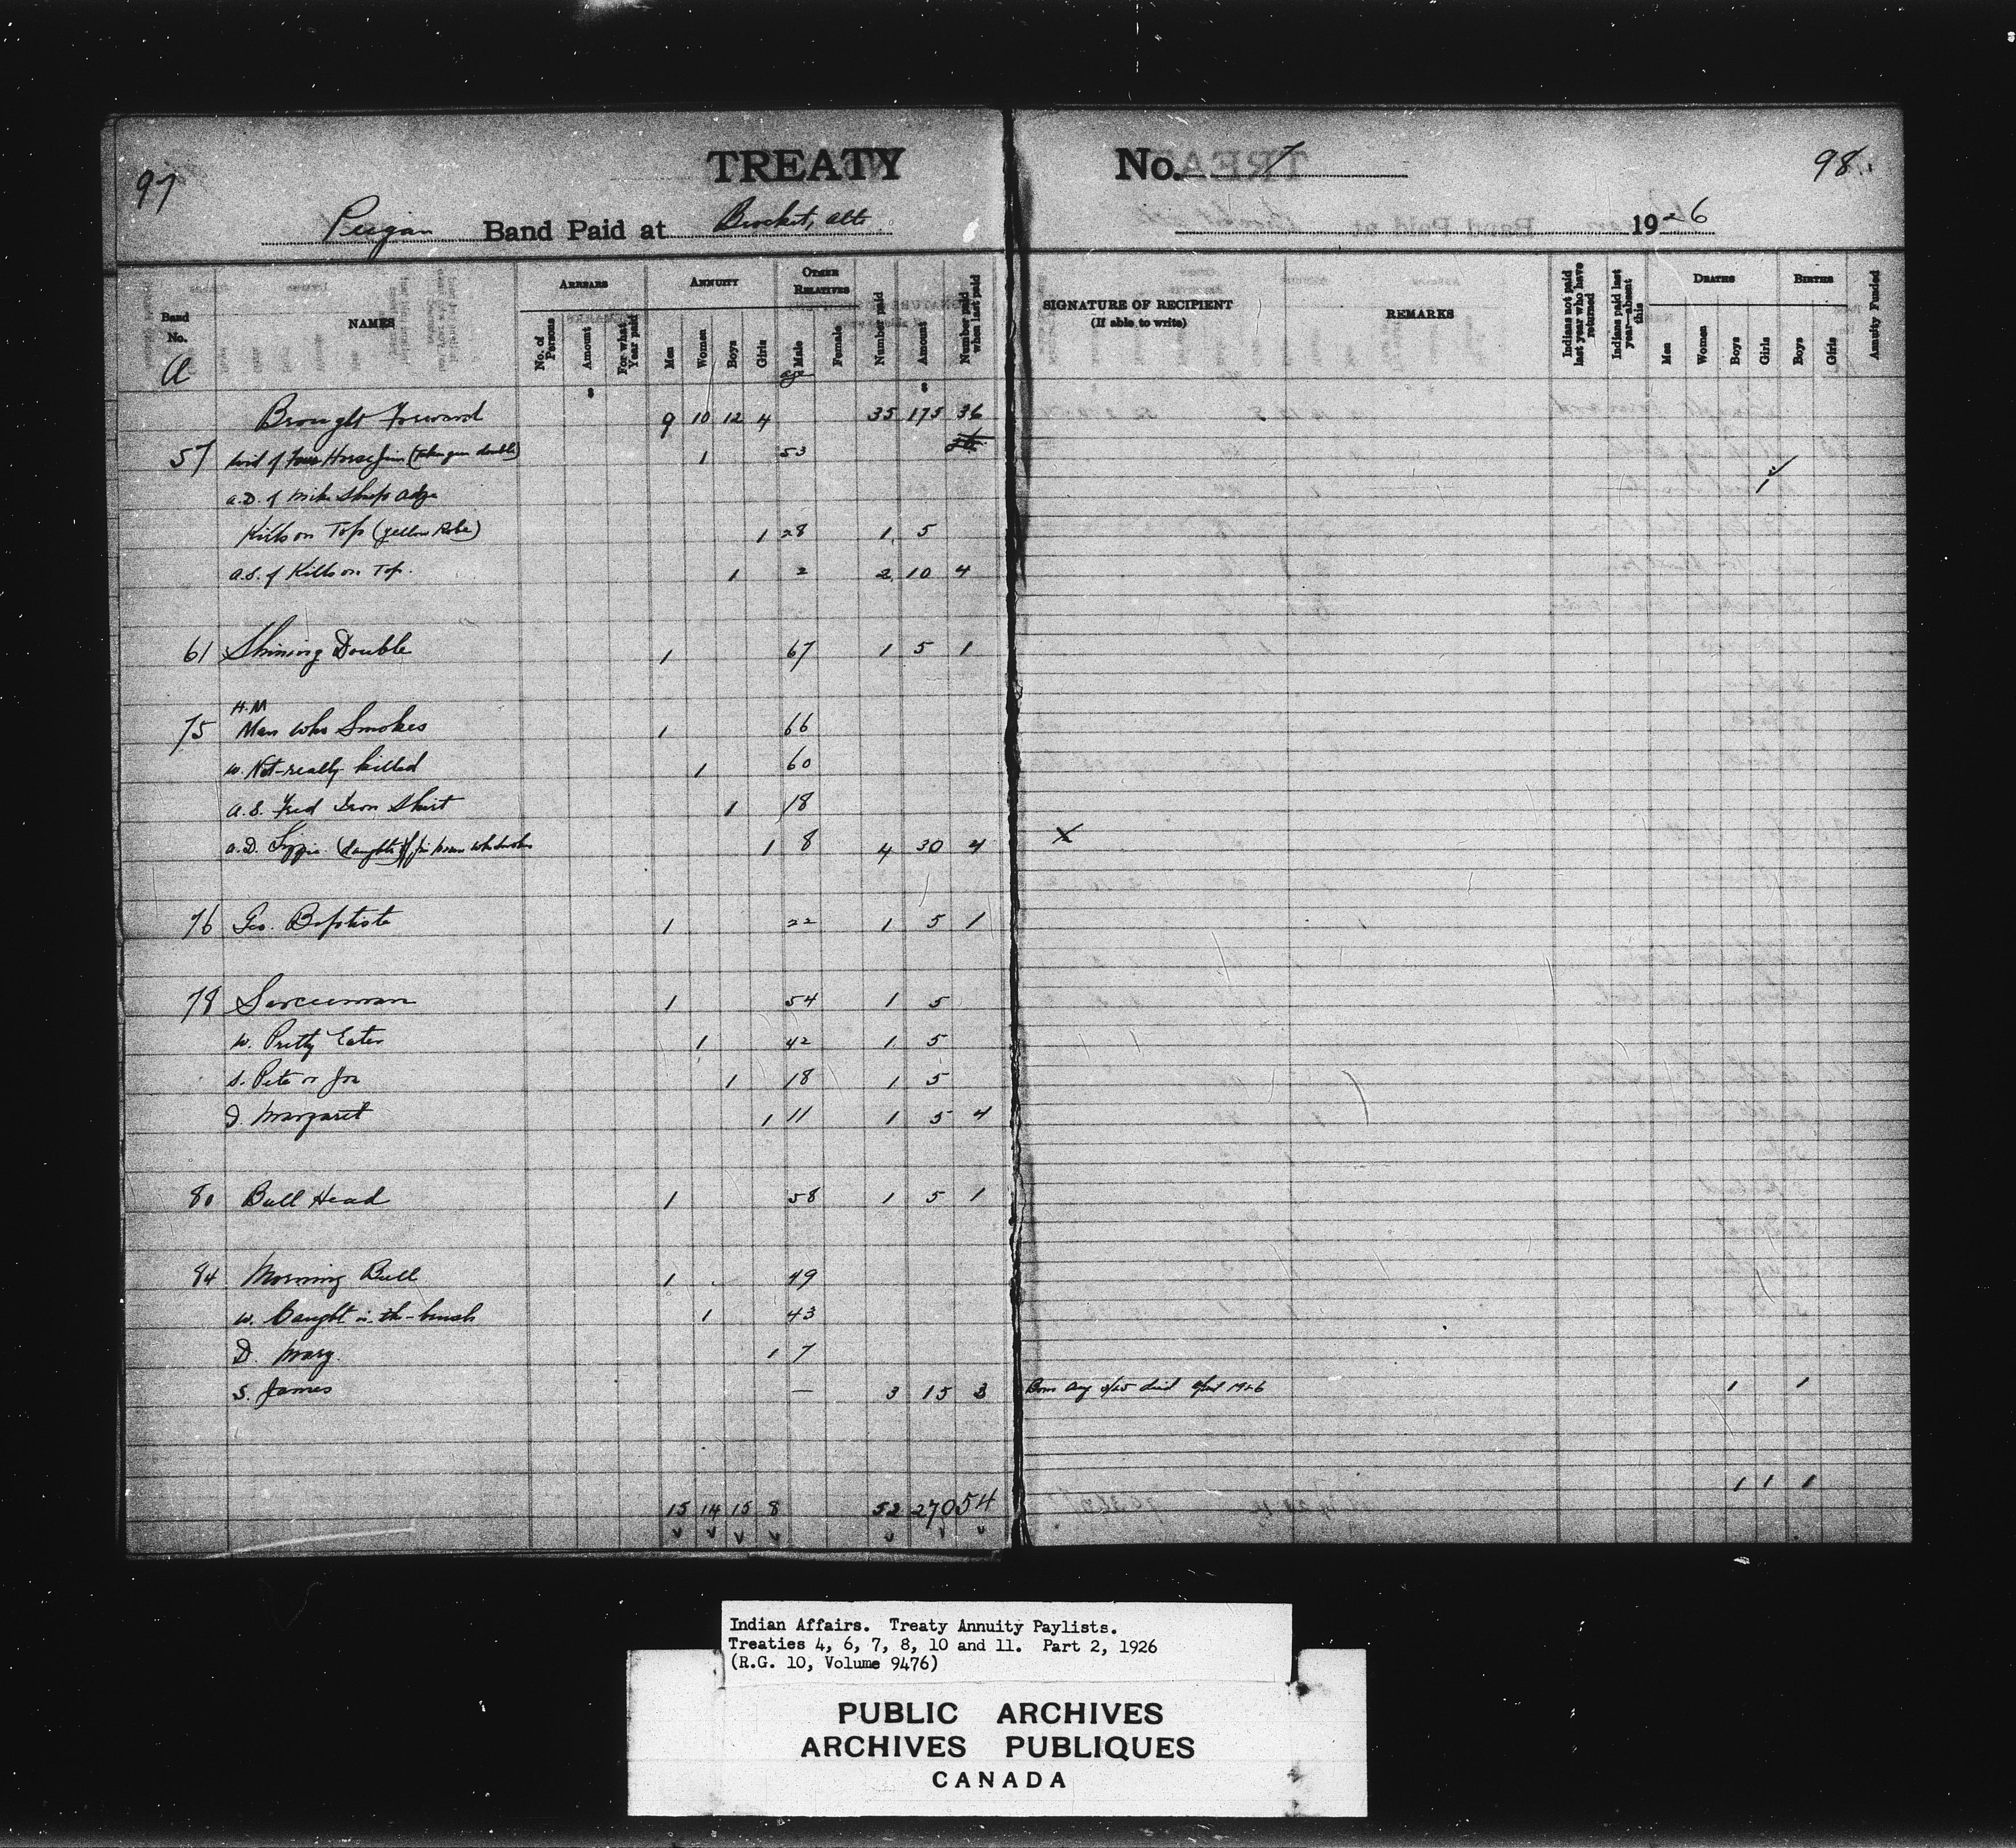 97
TREATY No. 7
98
Peigan Band Paid at Brocket, Alta
19 26
Band No. NAMES ARREARS ANNUITY OTHER RELATIVES Number paid Amount Number paid when last paid SIGNATURE OF RECIPIENT (If able to write) REMARKS Indians not paid last year who have returned Indians paid last year—absent this DEATHS BIRTHS Annuity Funded
No. of Persons Amount For what Year paid Men Women Boys Girls Male Female Men Women Boys Girls Boys Girls
A age
$ $
Brought Forward 9 10 12 4 35 175 36
57 wid of Four Horse Jim (Taken gun double) 1 53
a.D. of Mike Sharp adze 1
Kills on Top (yellow Robe) 1 28 1 5
a.S. of Kills on Top. 1 2 2 10 4
61 Shining Double 1 67 1 5 1
H.M
75 Man who Smokes 1 66
w. Not-really killed 1 60
a.S. Fred Iron Shirt 1 18
a.D. Lizzie (daughter of 1 8 4 30 4 X
76 Geo. Baptiste 1 22 1 5 1
78 Sarceeman 1 54 1 5
w. Pretty Eater 1 42 1 5
S. Pete or Joe 1 18 1 5
D. Margaret 1 11 1 5 4
80 Bull Head 1 58 1 5 1
84 Morning Bull 1 49
w. Caught-in-the-brush 1 43
D. Mary. 1 7
S. James — 3 15 3 Born Aug 3/25 died April 1926 1 1
1 1 1
15 14 15 8 52 270 54
Indian Affairs. Treaty Annuity Paylists.
Treaties 4, 6, 7, 8, 10 and 11. Part 2, 1926
(R.G. 10, Volume 9476)
PUBLIC ARCHIVES
ARCHIVES PUBLIQUES
CANADA